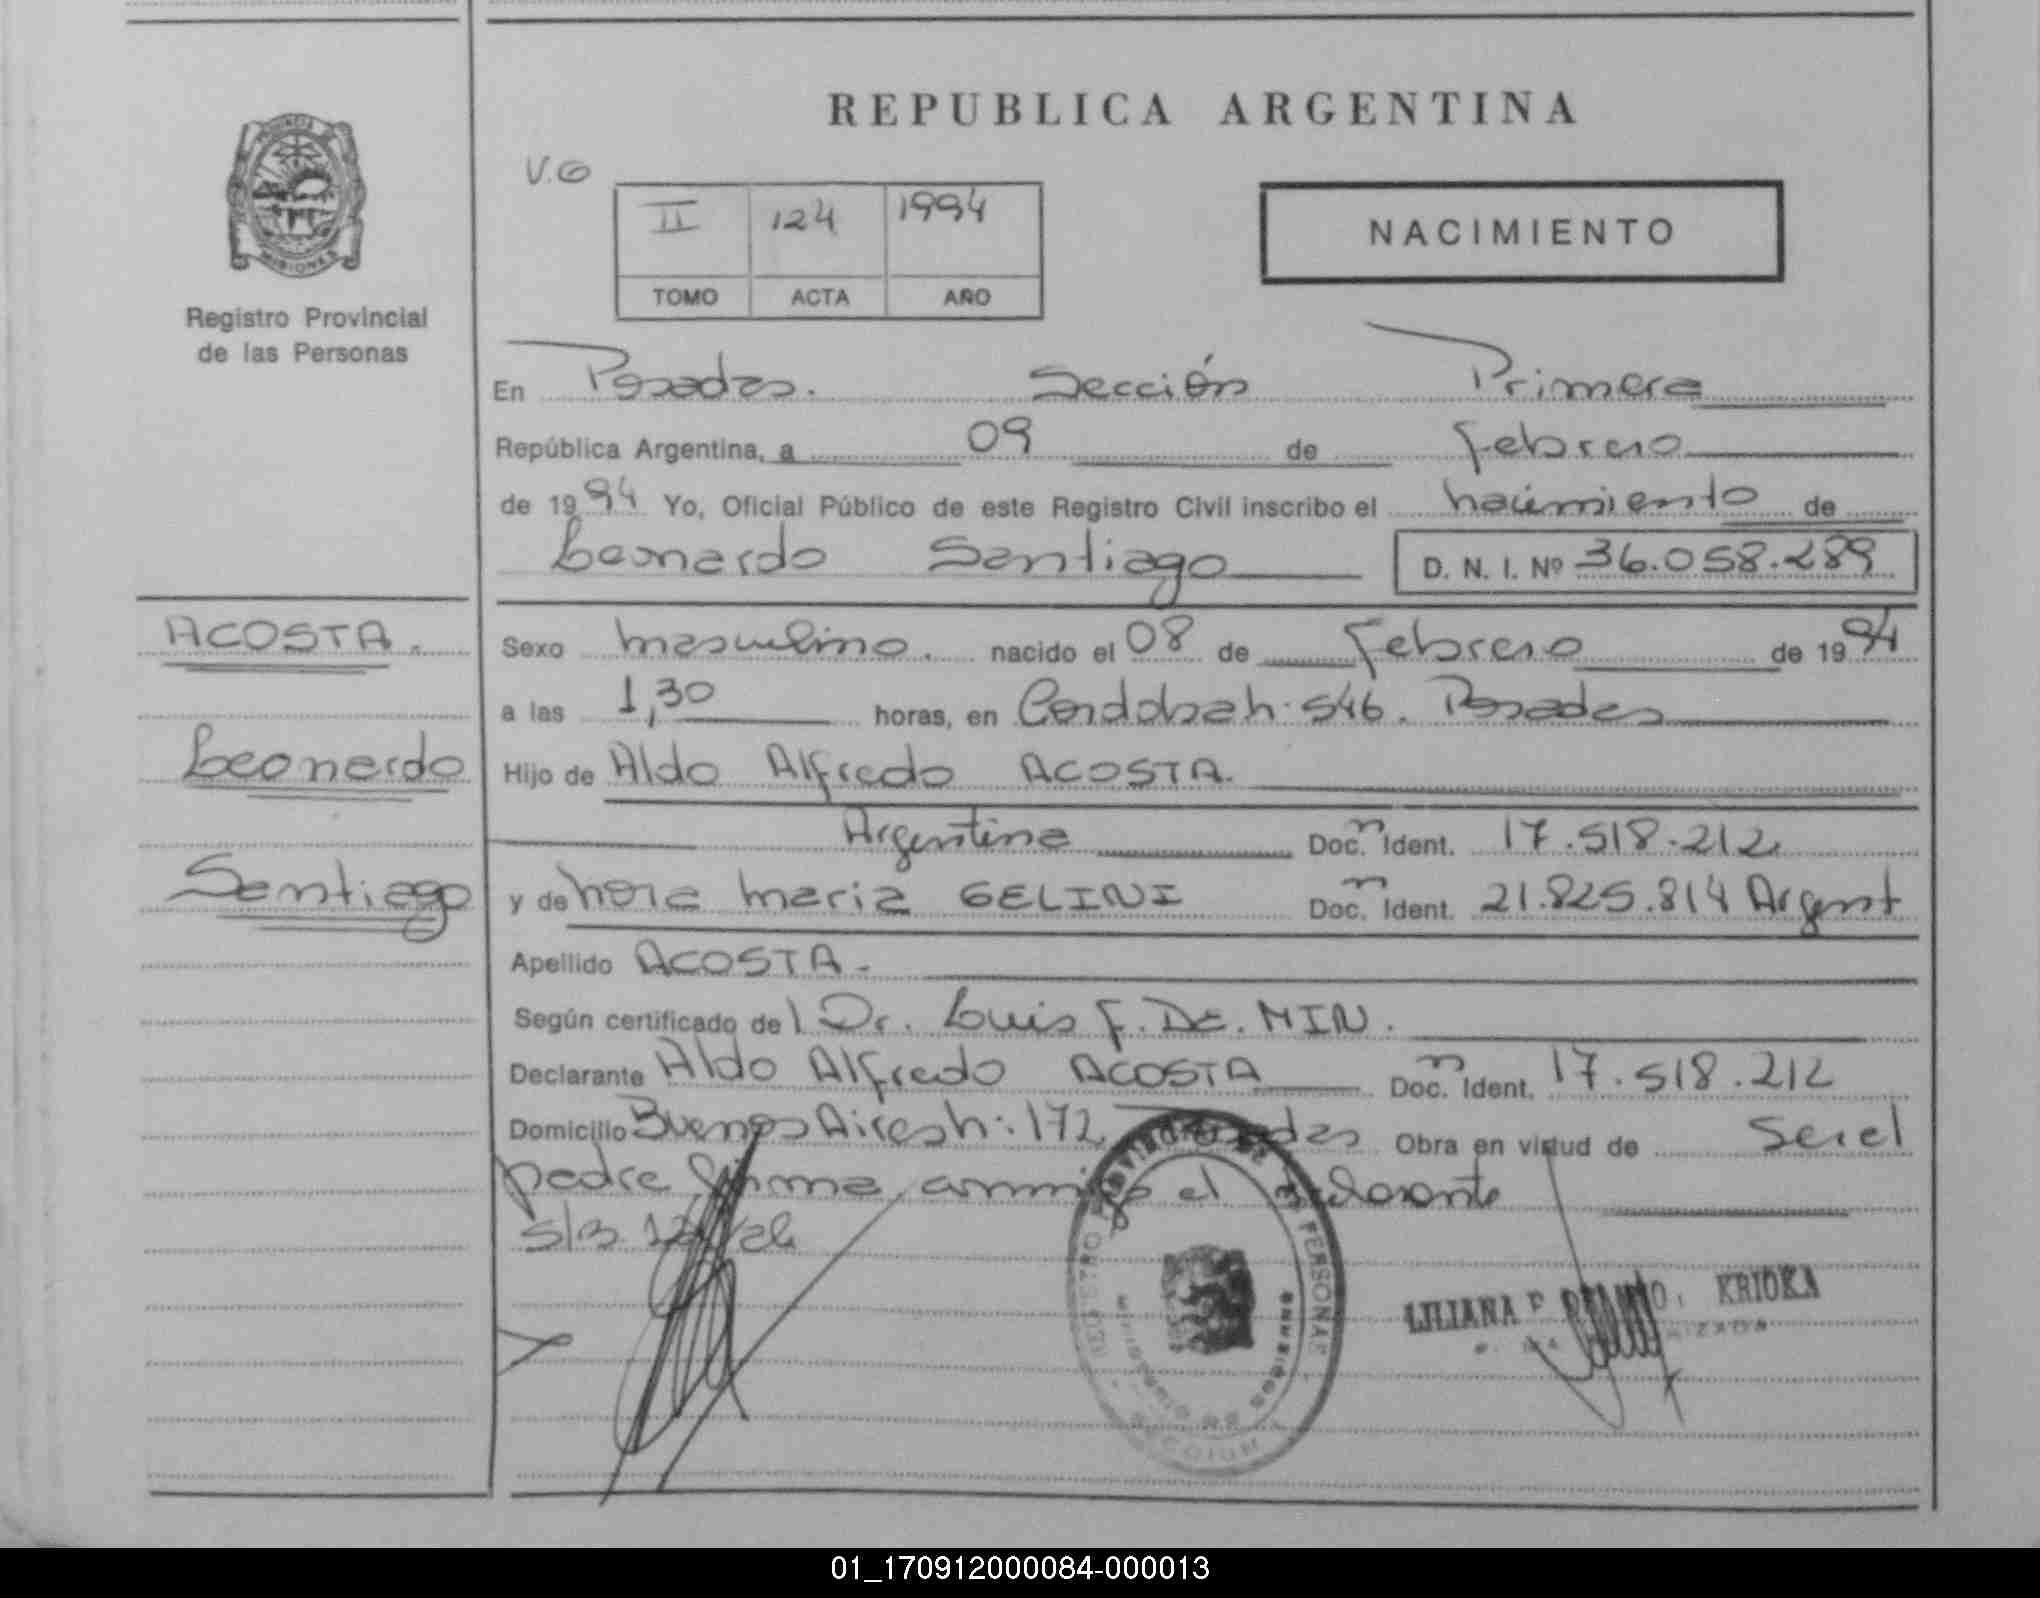 REPUBLICA ARGENTINA
PROVINCIA DE
MISIONES
Registro Provincial
de las Personas
V.G
II 124 1994
TOMO ACTA AÑO
NACIMIENTO
En Posadas. Sección Primera
República Argentina, a 09 de febrero
de 1994 Yo, Oficial Público de este Registro Civil inscribo el nacimiento de
Leonardo Santiago D. N. I. Nº 36.058.289
ACOSTA.
Leonardo
Santiago
Sexo masculino. nacido el 08 de Febrero de 1994
a las 1,30 horas, en Cordobah: 546. Posadas
Hijo de Aldo Alfredo ACOSTA.
Argentina Doc. n Ident. 17.518.212
y de Nora Maria GELINI Doc. n Ident. 21.825.814 Argent
Apellido ACOSTA.
Según certificado del Dr. Luis F. DE. MIN.
Declarante Aldo Alfredo ACOSTA Doc. n Ident. 17.518.212
Domicilio Buenos Aires h: 172 Posadas Obra en virtud de Ser el
padre firma conmigo el declarante
S/B.
REGISTRO PROVINCIAL DE LAS PERSONAS
LILIANA KRIOKA
01_170912000084-000013